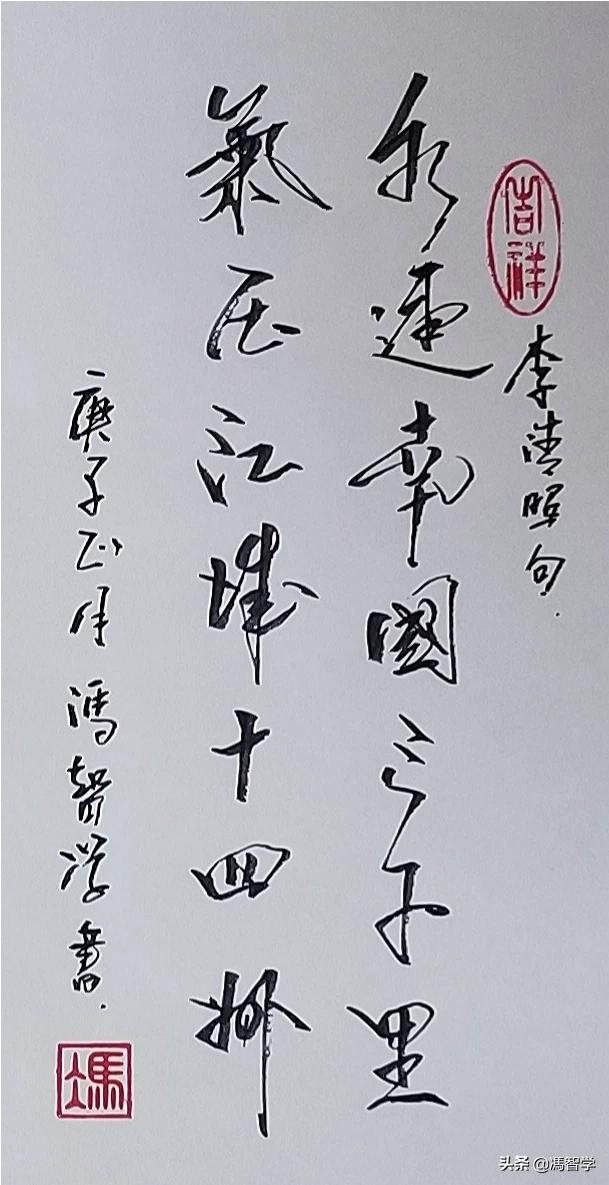 吉祥
李清照句
水通南國三千里
氣压江城十四州
庚子正月馮智学書
馮
头条 @馮智学